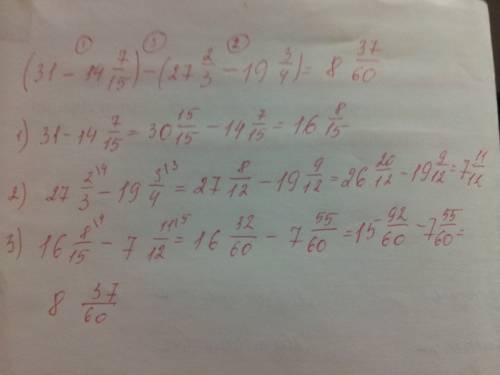 ① ③ ②
(31 − 14 7/15) − (27 2/3 − 19 3/4) = 8 37/60
1) 31 − 14 7/15 = 30 15/15 − 14 7/15 = 16 8/15
2) 27 2/3 ˡ⁴ − 19 3/4 ˡ³ = 27 8/12 − 19 9/12 = 26 20/12 − 19 9/12 = 7 11/12
3) 16 8/15 ˡ⁴ − 7 11/12 ˡ⁵ = 16 32/60 − 7 55/60 = 15 92/60 − 7 55/60 =
8 37/60